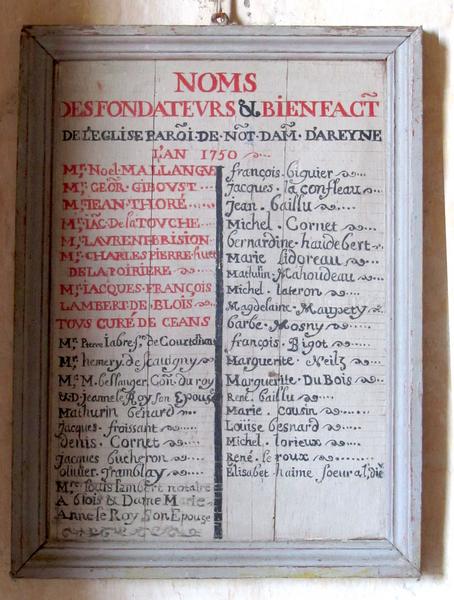 NOMS
DES FONDATEVRS & BIENFACT̃
DE L'EGLISE PAROĨ DE NOT̃ DAM̃ D'AREYNE
L'AN 1750
Mr. Noel MALLANGVE
Mr. GEOR̃. GIBOVST
Mr. IEAN THORÉ
Mr. IAC̃. De la TOVCHE
Mr. LAVRENT BRISION
Mr. CHARLES PIERRE huet
DE LA POIRIERE
Mr. IACQUES FRANÇOIS
LAMBERT DE BLOIS
TOVS CURÉ DE CEANS
Mr. Pierre Labre Sr. de
Mr. hemery de Sauvigny
Mr. M. bellanger Con. du roy
& D. Jeanne le Roy Son Epouse
Mathurin benard
Jacques froissant
denis. Cornet
Jacques bucheron
olivier Tramblay
Mr. louis lambert notaire
A blois & Dame Marie
Anne le Roy Son Epouse
françois. biguier
Jacques. la confleau
Jean. baillu
Michel. Cornet
bernardine. haudebert
Marie lidoreau
Mathulin Mahoudeau
Michel. lateron
Magdelaine. Maupety
barbe. Mosny
françois. Bigot
Marguerite. Neilz
Marguerite. Du Bois
René. baillu
Marie. cousin
Louise besnard
Michel. lorieux
René. le roux
Elisabet haime Soeur a l.die